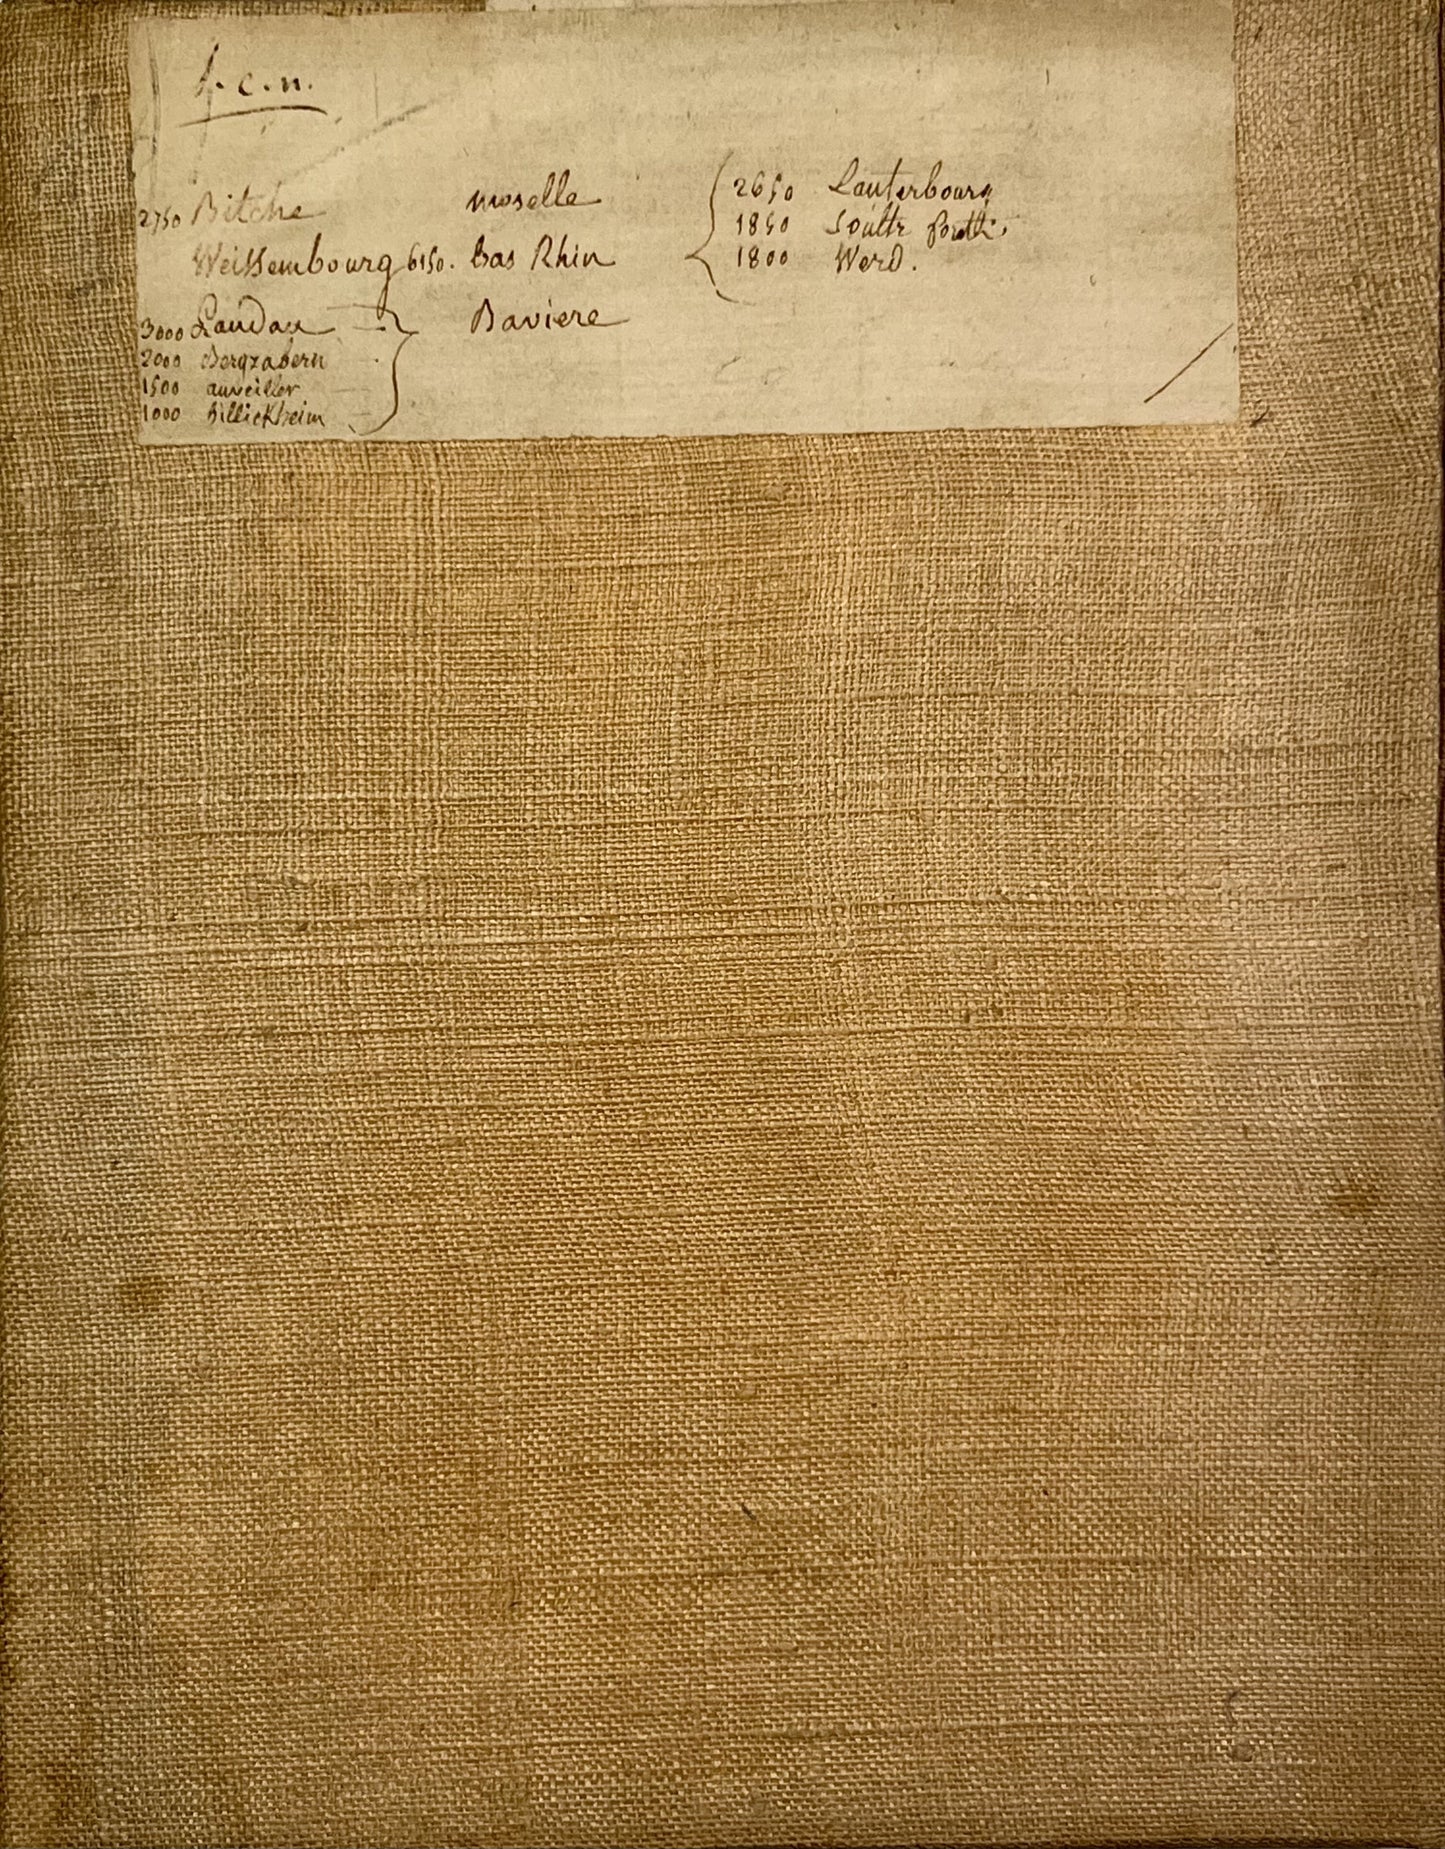 f. c. n.
2750 Bitche moselle { 2650 Lauterbourg
1850 Soultz foreth.
Weissembourg 6150. bas Rhin 1800 Werd.
3000 Landau } Baviere
2000 Bergzabern
1500 anveiller
1000 billickheim